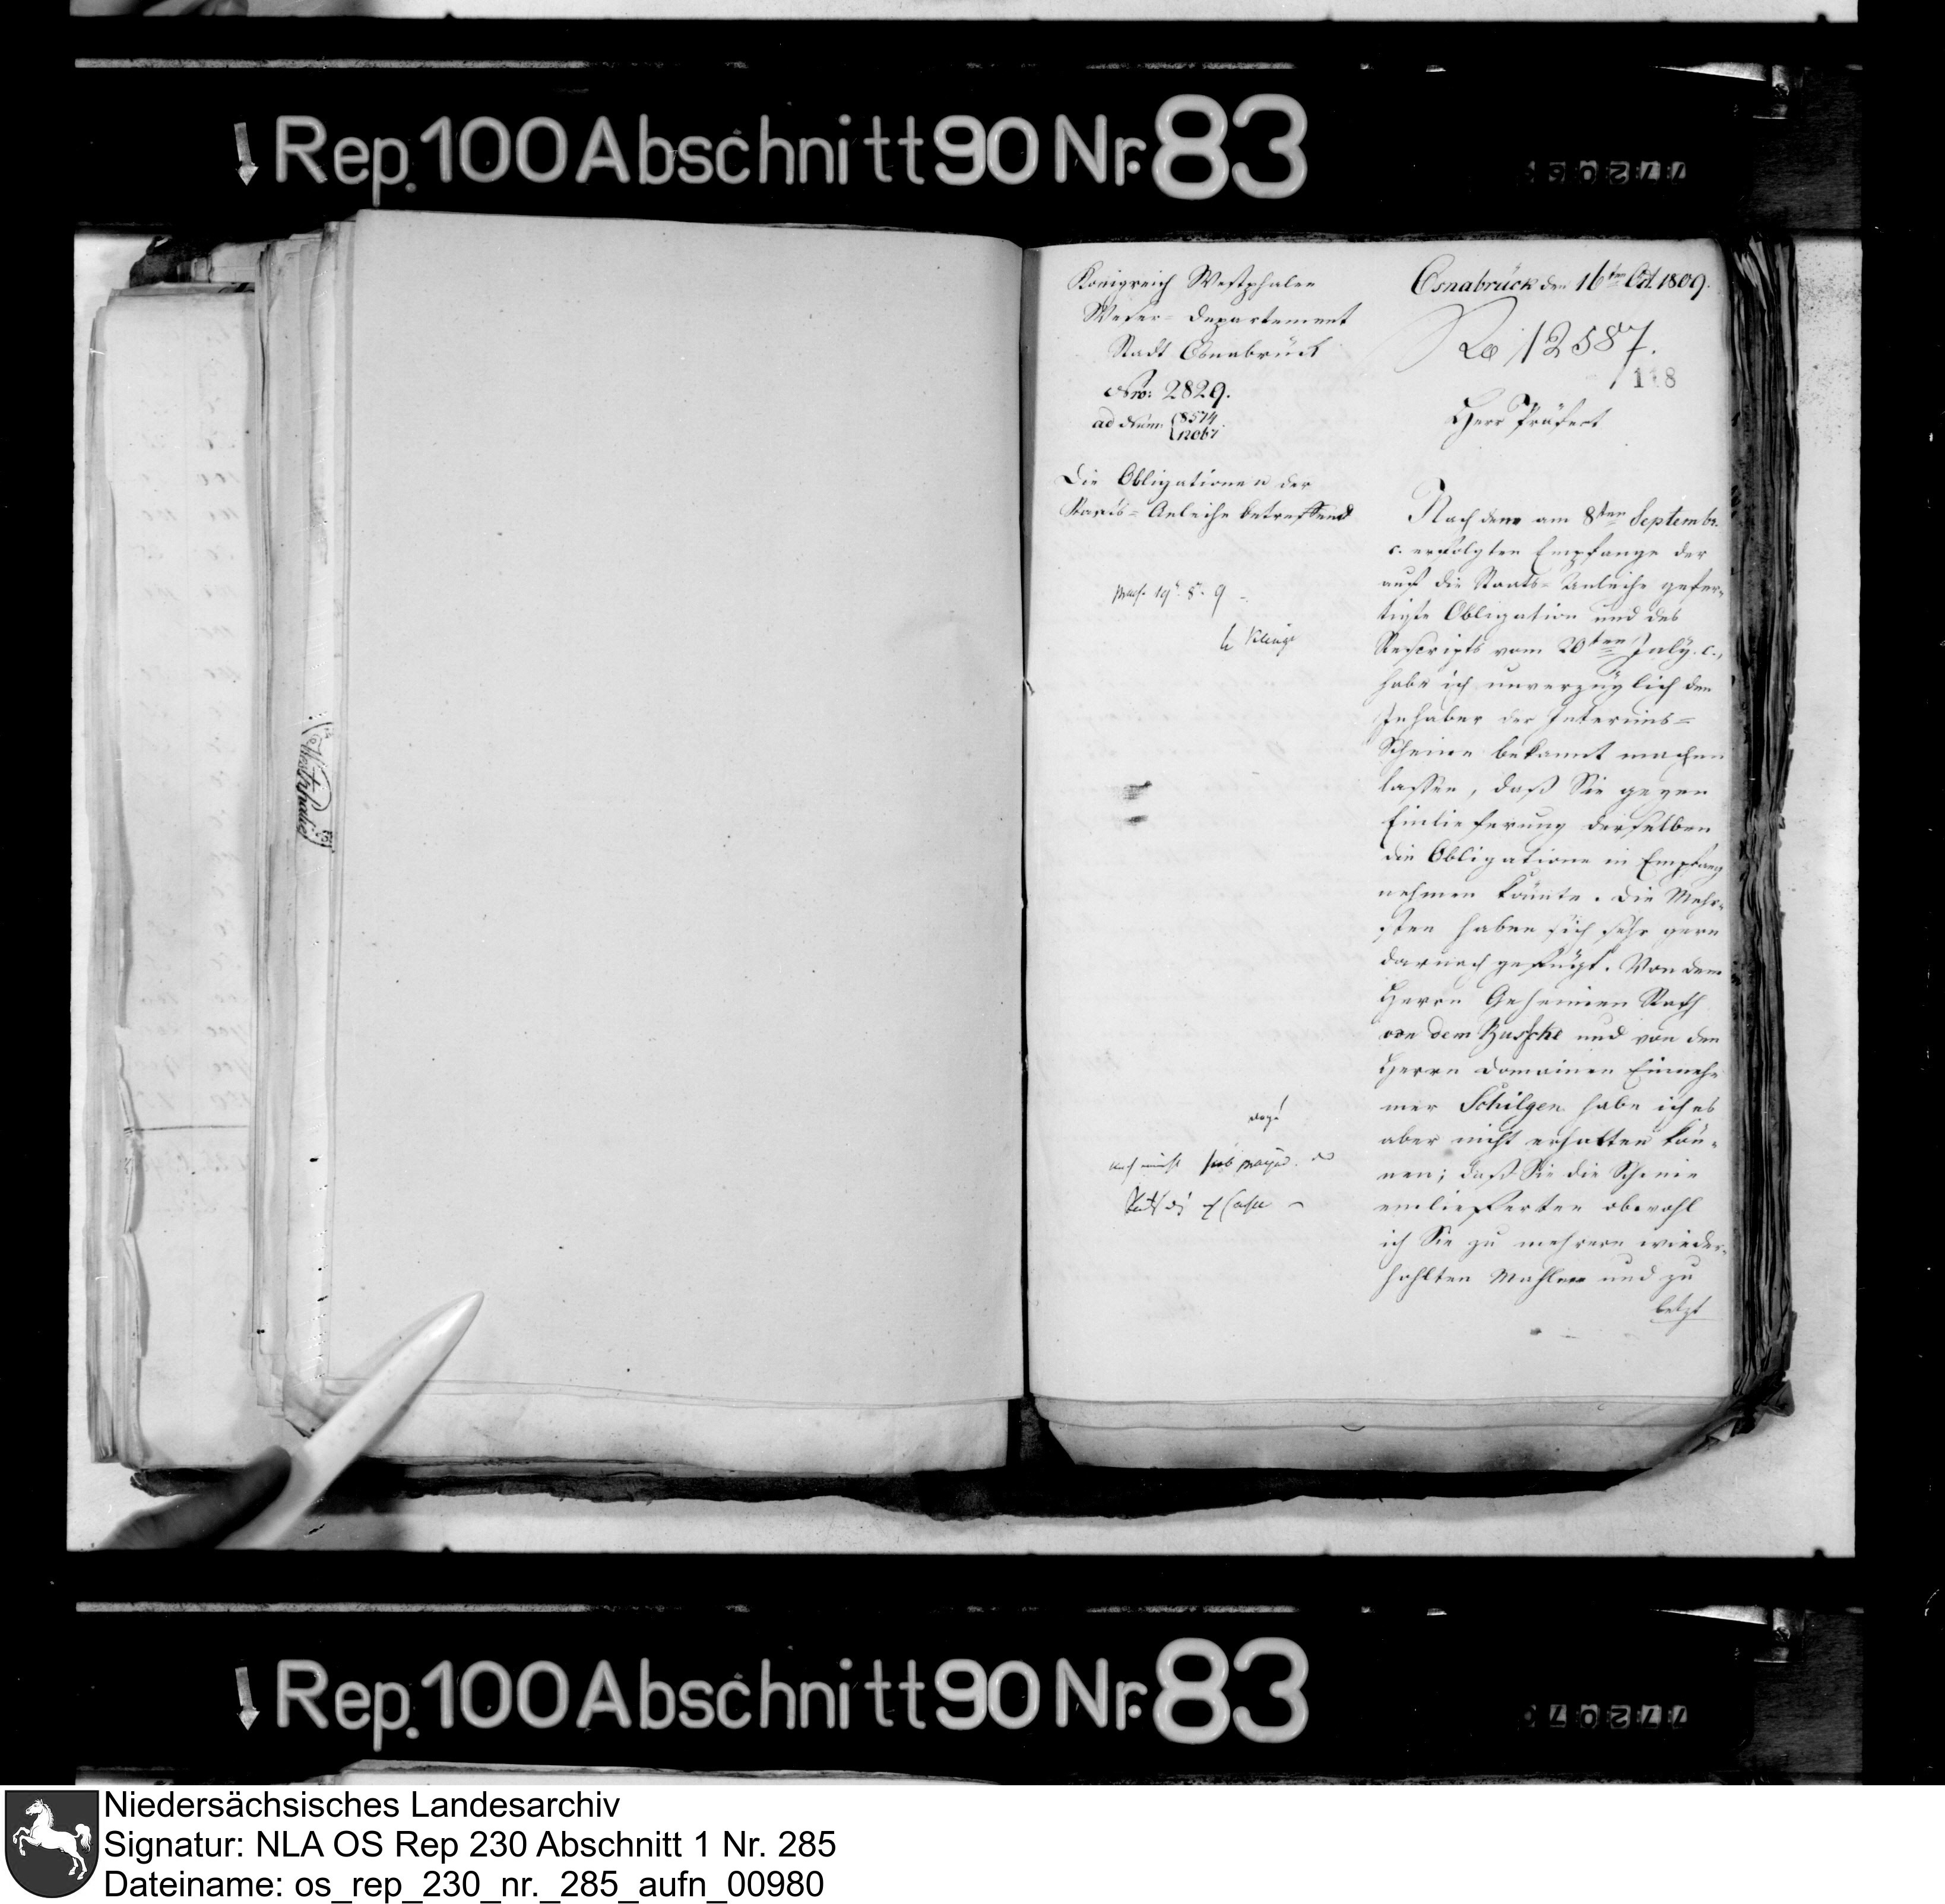 Rep. 100 Abschnitt 90 Nr. 83
Königreich Westphalen
Weser-Departement
Stadt Osnabrück
Nro: 2829.
ad Num: 8574
12067
Die Obligationen der
Staats-Anleihe betreffend
Osnabrück den 16ten Oct. 1809.
12587.
118
Herr Präfect
Nach dem am 8ten Septembr.
c. erfolgten Empfange der
auf die Staats-Anleihe gefer-
tigte Obligation und des
Rescripts vom 20ten July. c.,
habe ich unverzüglich den
Inhaber der Interims-
Scheine bekannt machen
lassen, daß Sie gegen
Einlieferung derselben
die Obligatione in Empfang
nehmen könnte. Die Mehr-
sten haben sich sehr gern
darnach gefügt. Von dem
Herrn Geheimen Rath
von dem Bussche und von den
Herrn Domainen Einneh
mer Schilgen habe ich es
aber nicht erhalten kön-
nen; daß Sie die Scheine
einlieferten obwohl
ich Sie zu mehrern wieder-
hohlten Mahlen und zu
letzt
Westphalen
Rep. 100 Abschnitt 90 Nr. 83
Niedersächsisches Landesarchiv
Signatur: NLA OS Rep 230 Abschnitt 1 Nr. 285
Dateiname: os_rep_230_nr._285_aufn_00980